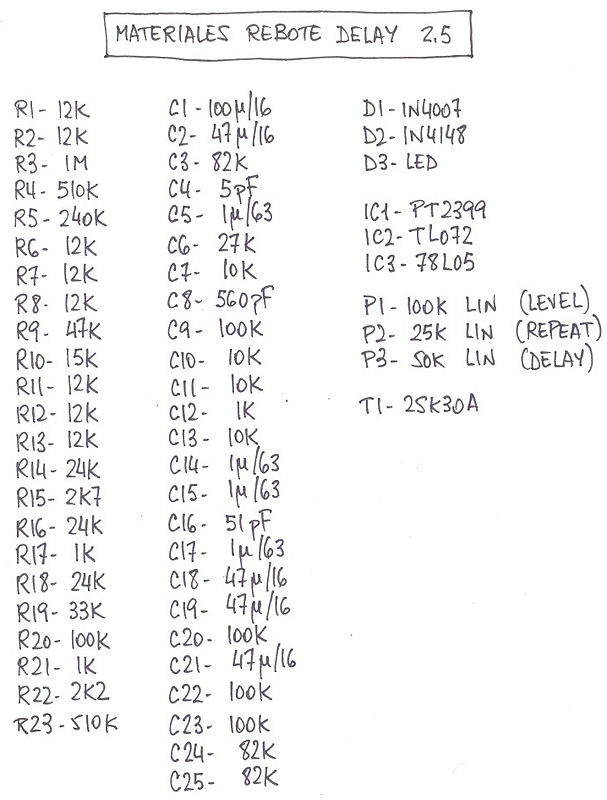 MATERIALES REBOTE DELAY 2.5
R1- 12K
R2- 12K
R3- 1M
R4- 510K
R5- 240K
R6- 12K
R7- 12K
R8- 12K
R9- 47K
R10- 15K
R11- 12K
R12- 12K
R13- 12K
R14- 24K
R15- 2K7
R16- 24K
R17- 1K
R18- 24K
R19- 33K
R20- 100K
R21- 1K
R22- 2K2
R23- 510K
C1- 100µ/16
C2- 47µ/16
C3- 82K
C4- 5pF
C5- 1µ/63
C6- 27K
C7- 10K
C8- 560pF
C9- 100K
C10- 10K
C11- 10K
C12- 1K
C13- 10K
C14- 1µ/63
C15- 1µ/63
C16- 51pF
C17- 1µ/63
C18- 47µ/16
C19- 47µ/16
C20- 100K
C21- 47µ/16
C22- 100K
C23- 100K
C24- 82K
C25- 82K
D1- 1N4007
D2- 1N4148
D3- LED
IC1- PT2399
IC2- TL072
IC3- 78L05
P1- 100K LIN (LEVEL)
P2- 25K LIN (REPEAT)
P3- 50K LIN (DELAY)
T1- 2SK30A